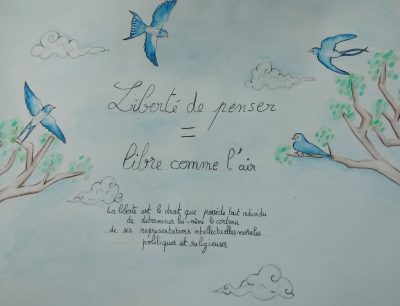 Liberté de penser
=
libre comme l'air
La liberté est le droit que possède tout individu
de déterminer lui-même le contenu
de ses représentations intellectuelles morales
politiques et religieuses